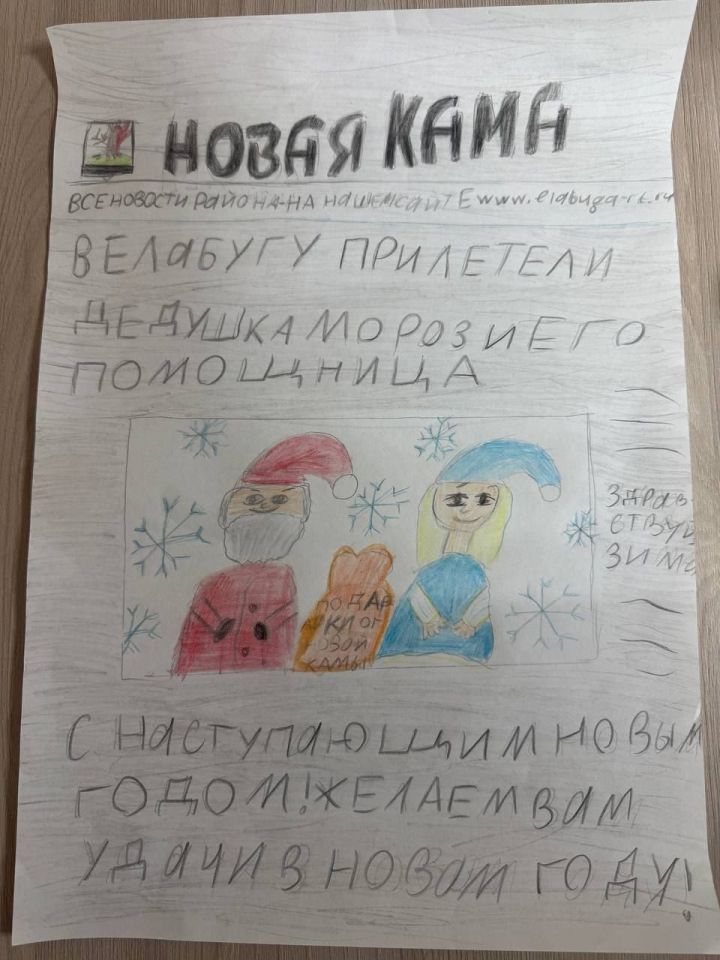 НОВАЯ КАМА
ВСЕ НОВОСТИ РАЙОНА-НА НАШЕМ САЙТЕ www.elabuga-rt.ru
В ЕЛАБУГУ ПРИЛЕТЕЛИ
ДЕДУШКА МОРОЗ И ЕГО
ПОМОЩНИЦА
ЗДРАВ-
СТВУЙ
ЗИМА
ПОДАР
КИ ОТ
НОВОЙ
КАМЫ
С НАСТУПАЮЩИМ НОВЫМ
ГОДОМ! ЖЕЛАЕМ ВАМ
УДАЧИ В НОВОМ ГОДУ!